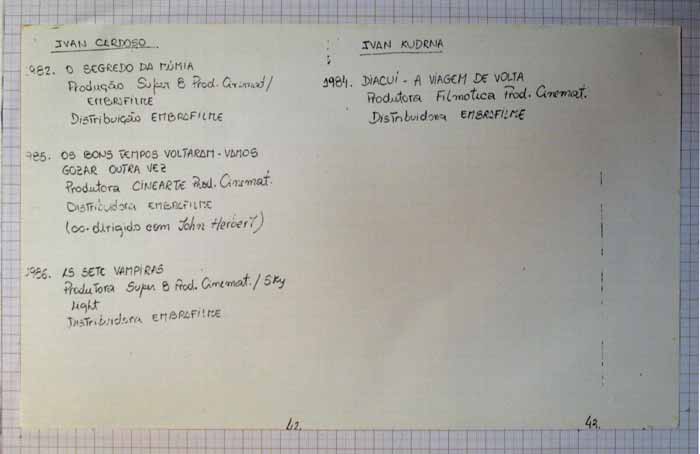 IVAN CERDOSO
1982. O SEGREDO DA MÚMIA
Produção Super 8 Prod. Cinemat/
EMBRAFILME
Distribuição EMBRAFILME
1985. OS BONS TEMPOS VOLTARAM - VAMOS
GOZAR OUTRA VEZ
Produtora CINEARTE Prod. Cinemat.
Distribuidora EMBRAFILME
(co-dirigido com John Herbert)
1986. AS SETE VAMPIRAS
Produtora Super 8 Prod. Cinemat./Sky
light
Distribuidora EMBRAFILME
42.
IVAN KUDRNA
1984. DIACUÍ - A VIAGEM DE VOLTA
Produtora Filmoteca Prod. Cinemat.
Distribuidora EMBRAFILME
43.